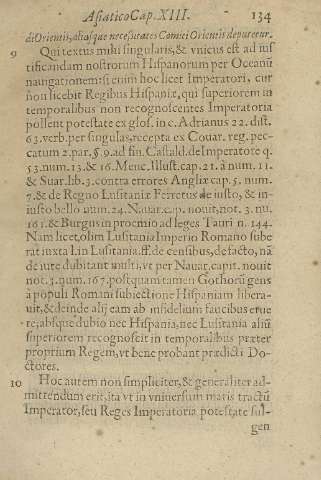 Asiatico Cap. XIII. 134
di Orientis, aliasque necessitates Comici Orientis deputetur.
9 Qui textus mihi singularis, & vnicus est ad ius
tificandam nostrorum Hispanorum per Oceanũ
nauigationem: si enim hoc licet Imperatori, cur
non licebit Regibus Hispaniæ, qui superiorem in
temporalibus non recognoscentes Imperatoria
pollent potestate ex glos. in c. Adrianus 22. dist.
63. verb. per singulas, recepta ex Couar. reg. pec-
catum 2. par. §. 9. ad fin. Castald. de Imperatore q.
53. num. 13. & 16. Menc. Illust. cap. 21. à num. 11.
& Suar. lib. 3. contra errores Angliæ cap. 5. num.
7. & de Regno Lusitaniæ Ferretus de iusto, & in-
iusto bello num. 24. Nauar. cap. nouit, not. 3. nu.
161. & Burgus in proemio ad leges Tauri n. 144.
Nam licet, olim Lusitania Imperio Romano sube
rat iuxta l. in Lusitania. ff. de censibus, de facto, nã
de iure dubitant multi, vt per Nauar. capit. nouit
not. 3. num. 167. postquam tamen Gothorũ gens
à populi Romani subiectione Hispaniam libera-
uit, & deinde alij eam ab infidelium faucibus erue
re, absque dubio nec Hispania, nec Lusitania aliũ
superiorem recognoscit in temporalibus præter
proprium Regem, vt bene probant prædicti Do-
ctores.
10 Hoc autem non simpliciter, & generaliter ad-
mittendum erit, ita vt in vniuersum maris tractũ
Imperator, seu Reges Imperatoria potestate ful-
gen